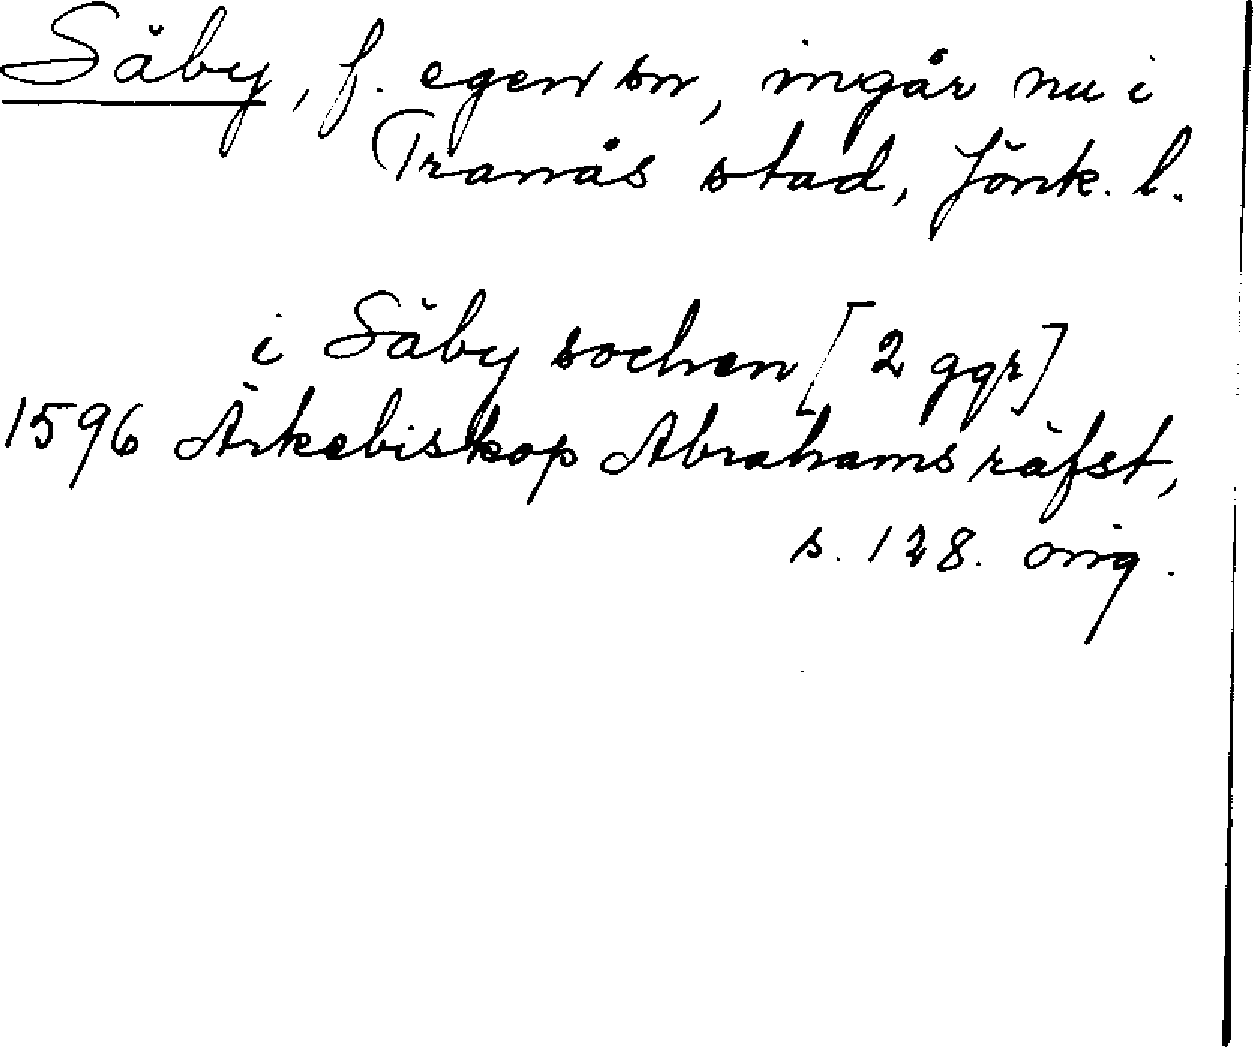 Säby, f. egen sn, ingår nu i
Tranås stad, Jönk. l.
i Säby sochen [2 ggr]
1596 Ärkebiskop Abrahams räfst,
s. 128. orig.